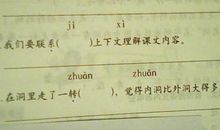 jì xì
我们要联系( )上下文理解课文内容。
zhuǎn zhuàn
在洞里走了一转( )，觉得内洞比外洞大得多